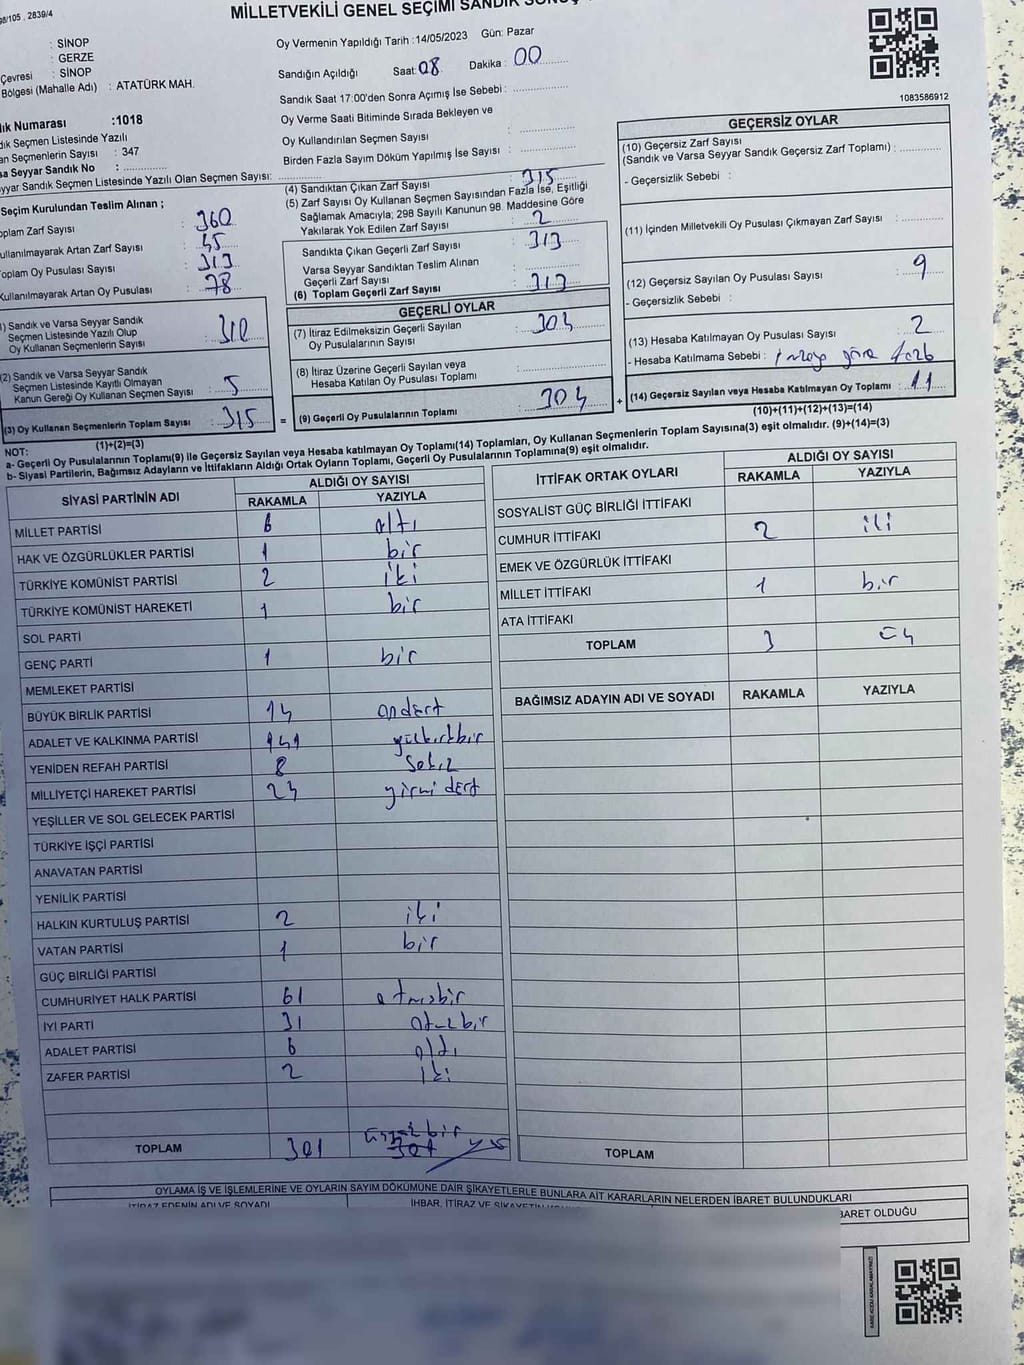 98/105 , 2839/4
MİLLETVEKİLİ GENEL SEÇİMİ SANDIK
: SİNOP
: GERZE
Çevresi : SİNOP
Bölgesi (Mahalle Adı) : ATATÜRK MAH.
Oy Vermenin Yapıldığı Tarih :14/05/2023 Gün: Pazar
Sandığın Açıldığı Saat: 08 Dakika : 00
Sandık Saat 17:00'den Sonra Açımış İse Sebebi :
Oy Verme Saati Bitiminde Sırada Bekleyen ve
Oy Kullandırılan Seçmen Sayısı :
Birden Fazla Sayım Döküm Yapılmış İse Sayısı :
1083586912
Numarası :1018
Seçmen Listesinde Yazılı
Seçmenlerin Sayısı : 347
Seyyar Sandık No :
Sandık Seçmen Listesinde Yazılı Olan Seçmen Sayısı:
Seçim Kurulundan Teslim Alınan ;
Zarf Sayısı : 360
Artan Zarf Sayısı : 45
Oy Pusulası Sayısı : 313
Artan Oy Pusulası : 78
Sandık ve Varsa Seyyar Sandık
Seçmen Listesinde Yazılı Olup
Oy Kullanan Seçmenlerin Sayısı : 310
(2) Sandık ve Varsa Seyyar Sandık
Seçmen Listesinde Kayıtlı Olmayan
Kanun Gereği Oy Kullanan Seçmen Sayısı : 5
(3) Oy Kullanan Seçmenlerin Toplam Sayısı : 315
(1)+(2)=(3)
(4) Sandıktan Çıkan Zarf Sayısı : 315
(5) Zarf Sayısı Oy Kullanan Seçmen Sayısından Fazla İse, Eşitliği
Sağlamak Amacıyla; 298 Sayılı Kanunun 98. Maddesine Göre
Yakılarak Yok Edilen Zarf Sayısı : 2
Sandıkta Çıkan Geçerli Zarf Sayısı : 313
Varsa Seyyar Sandıktan Teslim Alınan
Geçerli Zarf Sayısı :
(6) Toplam Geçerli Zarf Sayısı : 313
GEÇERLİ OYLAR
(7) İtiraz Edilmeksizin Geçerli Sayılan
Oy Pusulalarının Sayısı : 304
(8) İtiraz Üzerine Geçerli Sayılan veya
Hesaba Katılan Oy Pusulası Toplamı :
= (9) Geçerli Oy Pusulalarının Toplamı : 304 +
GEÇERSİZ OYLAR
(10) Geçersiz Zarf Sayısı
(Sandık ve Varsa Seyyar Sandık Geçersiz Zarf Toplamı) :
- Geçersizlik Sebebi :
(11) İçinden Milletvekili Oy Pusulası Çıkmayan Zarf Sayısı :
(12) Geçersiz Sayılan Oy Pusulası Sayısı : 9
- Geçersizlik Sebebi :
(13) Hesaba Katılmayan Oy Pusulası Sayısı : 2
- Hesaba Katılmama Sebebi : göre
(14) Geçersiz Sayılan veya Hesaba Katılmayan Oy Toplamı : 11
(10)+(11)+(12)+(13)=(14)
NOT:
a- Geçerli Oy Pusulalarının Toplamı(9) ile Geçersiz Sayılan veya Hesaba katılmayan Oy Toplamı(14) Toplamları, Oy Kullanan Seçmenlerin Toplam Sayısına(3) eşit olmalıdır. (9)+(14)=(3)
b- Siyasi Partilerin, Bağımsız Adayların ve İttifakların Aldığı Ortak Oyların Toplamı, Geçerli Oy Pusulalarının Toplamına(9) eşit olmalıdır.
SİYASİ PARTİNİN ADI ALDIĞI OY SAYISI
RAKAMLA YAZIYLA
MİLLET PARTİSİ 6 altı
HAK VE ÖZGÜRLÜKLER PARTİSİ 1 bir
TÜRKİYE KOMÜNİST PARTİSİ 2 iki
TÜRKİYE KOMÜNİST HAREKETİ 1 bir
SOL PARTİ
GENÇ PARTİ 1 bir
MEMLEKET PARTİSİ
BÜYÜK BİRLİK PARTİSİ 14 ondört
ADALET VE KALKINMA PARTİSİ 141 yüzkırkbir
YENİDEN REFAH PARTİSİ 8 sekiz
MİLLİYETÇİ HAREKET PARTİSİ 24 yirmi dört
YEŞİLLER VE SOL GELECEK PARTİSİ
TÜRKİYE İŞÇİ PARTİSİ
ANAVATAN PARTİSİ
YENİLİK PARTİSİ
HALKIN KURTULUŞ PARTİSİ 2 iki
VATAN PARTİSİ 1 bir
GÜÇ BİRLİĞİ PARTİSİ
CUMHURİYET HALK PARTİSİ 61 atmışbir
İYİ PARTİ 31 otuzbir
ADALET PARTİSİ 6 altı
ZAFER PARTİSİ 2 iki
TOPLAM 301 üçyüz bir
İTTİFAK ORTAK OYLARI ALDIĞI OY SAYISI
RAKAMLA YAZIYLA
SOSYALİST GÜÇ BİRLİĞİ İTTİFAKI
CUMHUR İTTİFAKI 2 iki
EMEK VE ÖZGÜRLÜK İTTİFAKI
MİLLET İTTİFAKI 1 bir
ATA İTTİFAKI
TOPLAM 3 üç
BAĞIMSIZ ADAYIN ADI VE SOYADI RAKAMLA YAZIYLA
TOPLAM
OYLAMA İŞ VE İŞLEMLERİNE VE OYLARIN SAYIM DÖKÜMÜNE DAİR ŞİKAYETLERLE BUNLARA AİT KARARLARIN NELERDEN İBARET BULUNDUKLARI
İTİRAZ EDENİN ADI VE SOYADI İHBAR, İTİRAZ VE ŞİKAYETİN BARET OLDUĞU